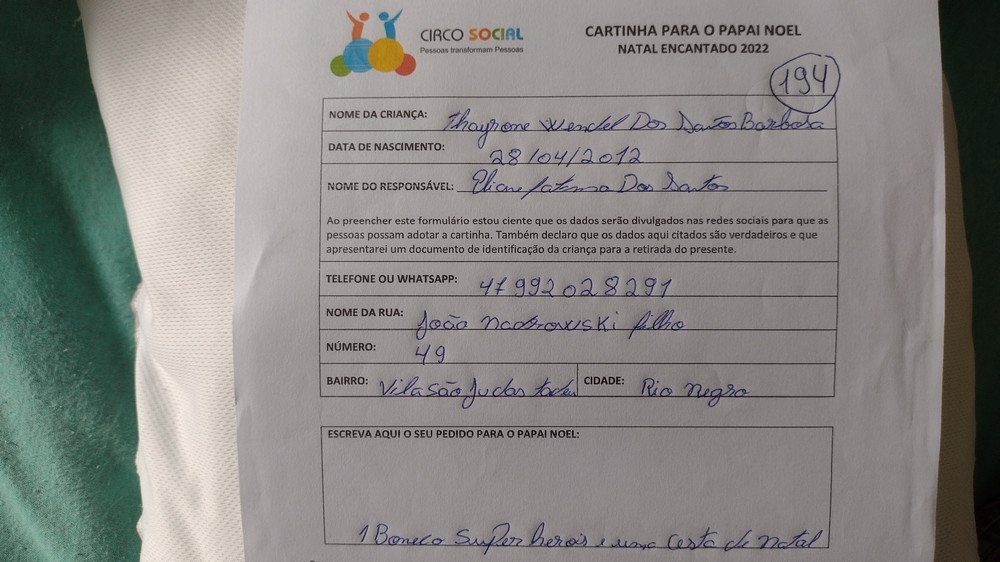 CIRCO SOCIAL
Pessoas transformam Pessoas
CARTINHA PARA O PAPAI NOEL
NATAL ENCANTADO 2022
194
NOME DA CRIANÇA: Thayrone Wendel Dos Santos Barbosa
DATA DE NASCIMENTO: 28/04/2012
NOME DO RESPONSÁVEL: Eliane fatima Dos Santos
Ao preencher este formulário estou ciente que os dados serão divulgados nas redes sociais para que as
pessoas possam adotar a cartinha. Também declaro que os dados aqui citados são verdadeiros e que
apresentarei um documento de identificação da criança para a retirada do presente.
TELEFONE OU WHATSAPP: 47 992028291
NOME DA RUA: João filho
NÚMERO: 49
BAIRRO: Vila São Judas tadeu CIDADE: Rio Negro
ESCREVA AQUI O SEU PEDIDO PARA O PAPAI NOEL:
1 Boneco Super herois e uma cesta de natal